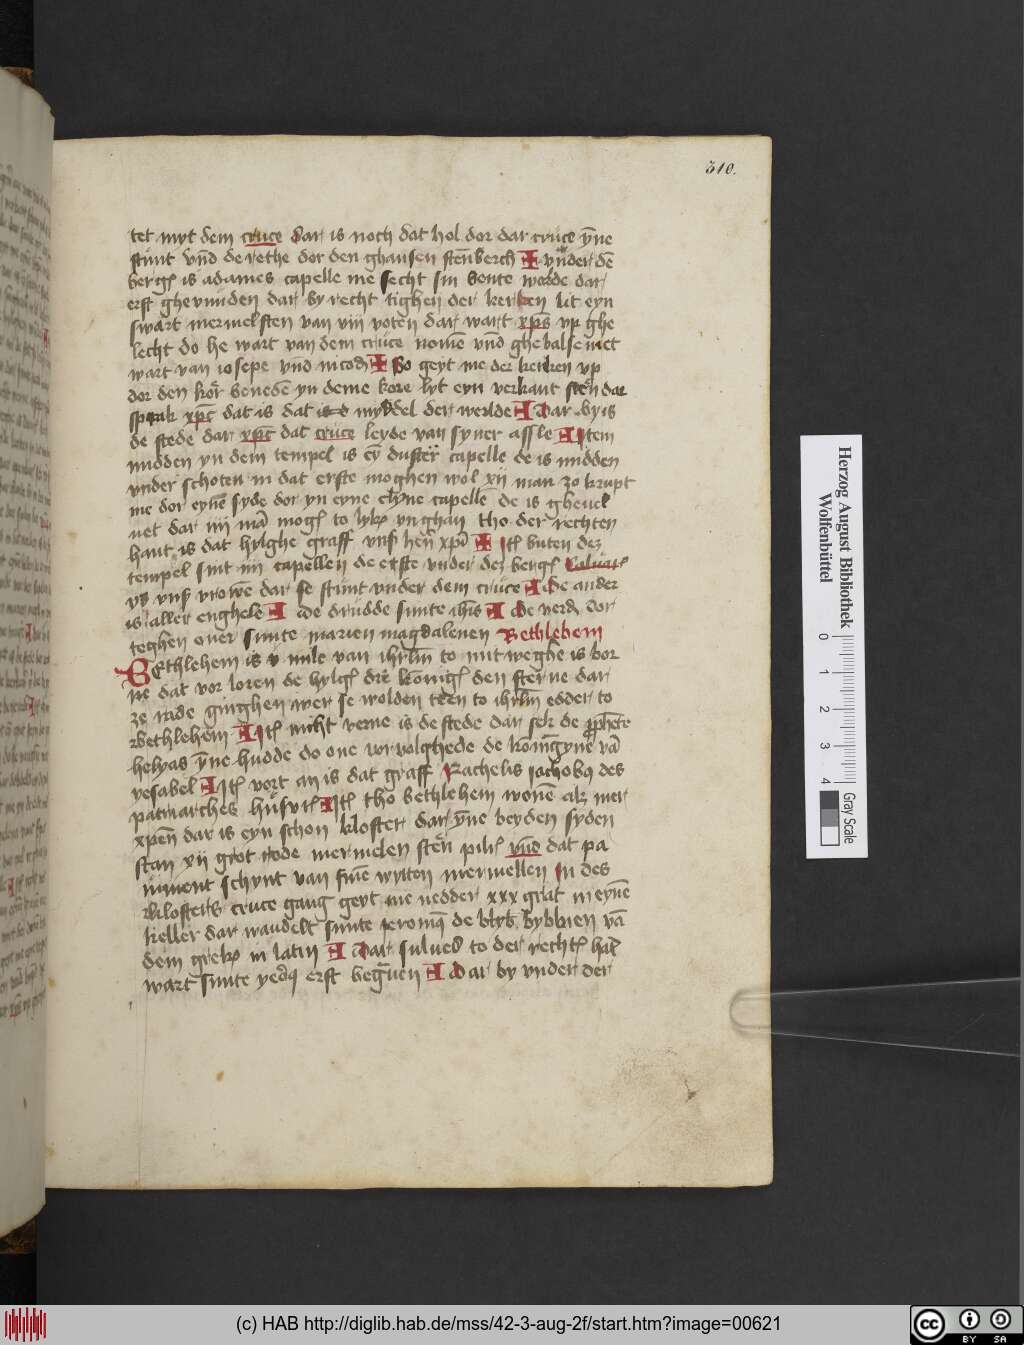 310.
tet myt dem cruce dar is noch dat hol dor dar cruce yne
stunt vnd de rethe dor den ghansen stenberch vnder de
berg is adames capelle me secht sin boute worde dar
erst ghevunden dar by recht tighen der kerken lit eyn
swart mermelsten van viii voten dar wart xps vp ghe
lecht do he wart van dem cruce nomē vnd ghebalsemet
wart van iosepe vnd nicod So geyt me der kerken vp
dor den kor benedē yn deme kore lyt eyn verhaut sten dar
sprak xpc dat is dat myddel der werlde Dar by is
de stede dar xpc dat cruce leyde van syner assle Item
midden yn dem tempel is ey duster capelle de is midden
vnder schoten in dat erste moghen wol xii man zo krupt
me dor eynē syde dor yn eyne clyne capelle de is gheuel
uet dar iiii mā mog to lyk yn ghan tho der rechten
hant is dat hylghe graff vnſ hern xpi It buten dez
tempel sint iiii capellen de erste vnder dez berg Caluar
vs vnſ vrowē dar se stunt vnder dem cruce De ander
is aller enghele De drudde sunte ihis De verd dor
teghen ouer sunte marien magdalenen Bethlehem
Bethlehem is v mile van ihrlm to mitweghe is bor
ne dat vor loren de hylg dre konig den sterne dar
ze mde ginghen wer se wolden teen to ihrlm edder to
bethlehem It nicht verne is de stede dar sek de pphete
helyas yne hudde do one vorvolghede de konigyne vā
yesabel It vort an is dat graff Rachelis jacobq des
patriarches husvr It tho bethlehem wonē alz mer
xpen dar is eyn schon kloster dar yne beyden syden
stan xii grot rode mermelen sten pilr vnde dat pa
niment schynt van sine wytten mermellen In des
klosters cruce gang geyt me nedder xxx grat in eyne
keller dar wandelt sunte jeronimq de bibbien vā
dem grek in latin Dar sulues to der recht hāt
wart sunte erst begrauen Dar by vnder der
Herzog August Bibliothek
Wolfenbüttel
0 1 2 3 4
Gray Scale
(c) HAB http://diglib.hab.de/mss/42-3-aug-2f/start.htm?image=00621
cc BY SA